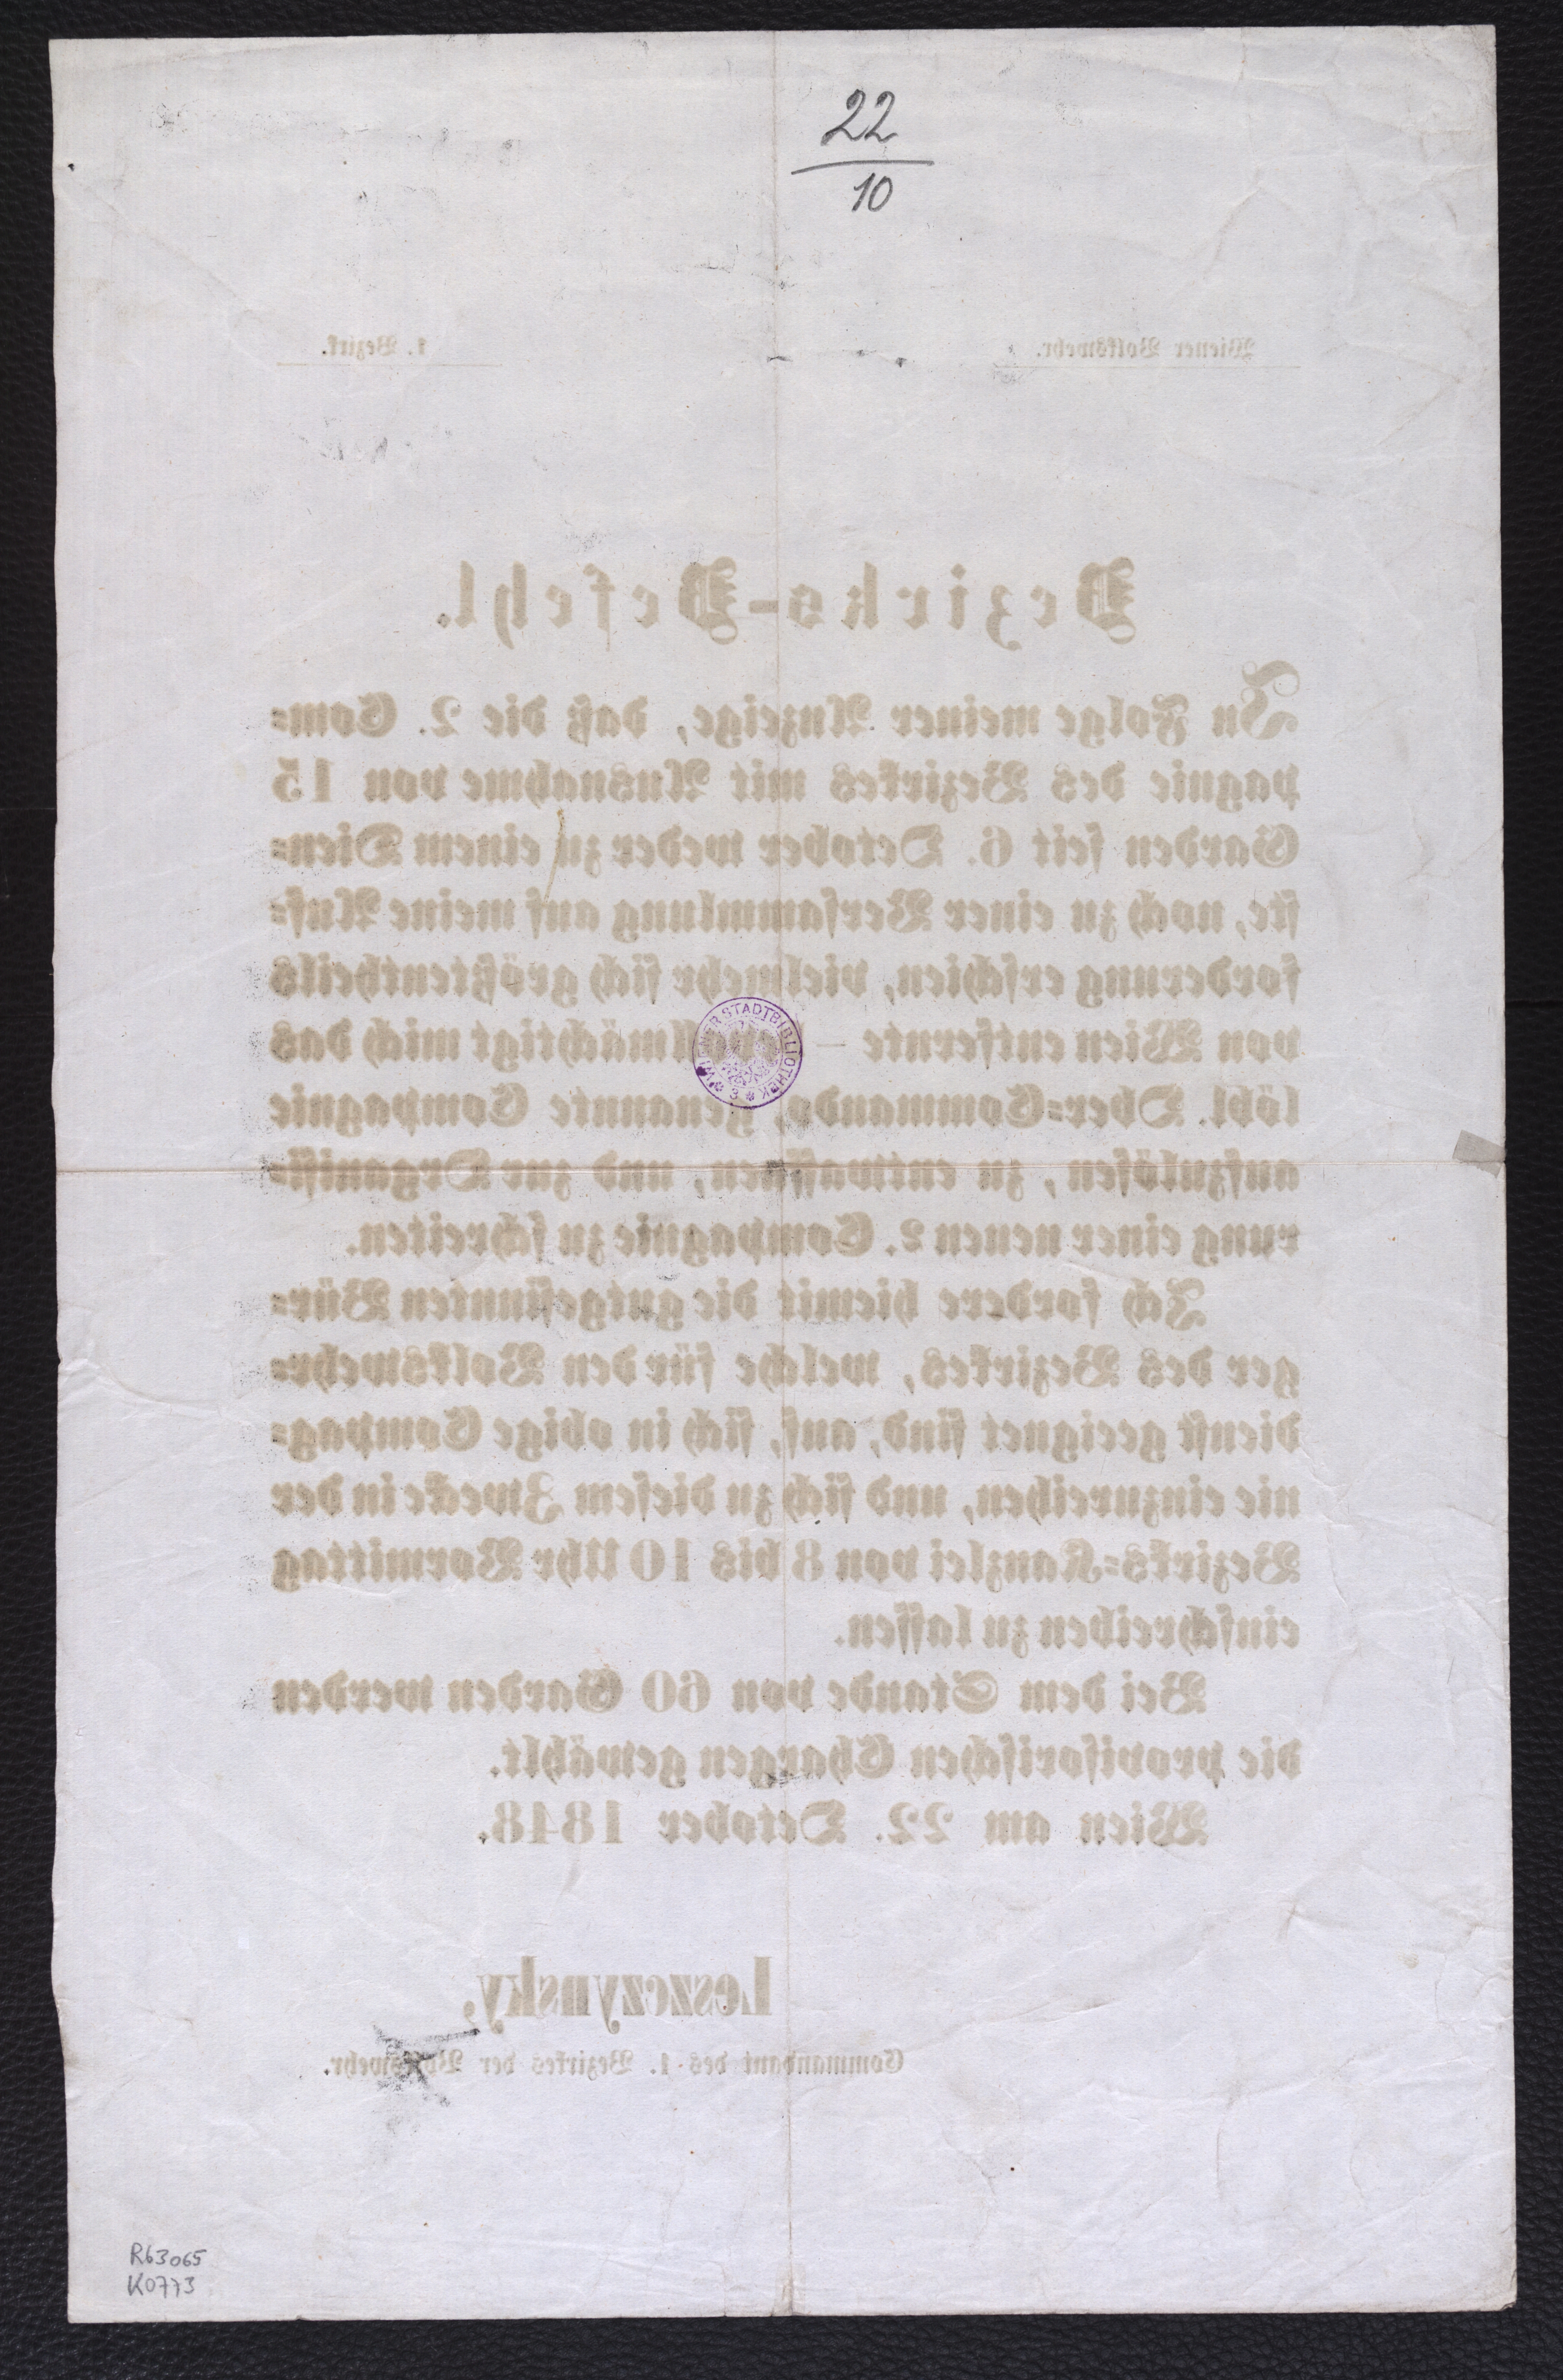 22
10
Wiener Volkswehr.
1. Bezirk.
Bezirks-Befehl.
In Folge meiner Anzeige, daß die 2. Com=
pagnie des Bezirkes mit Ausnahme von 15
Garden seit 6. October weder zu einem Dien=
ste, noch zu einer Versammlung auf meine Auf=
forderung erschien, vielmehr sich größtentheils
von Wien entfernte — bevollmächtigt mich das
löbl. Ober=Commando, genannte Compagnie
aufzulösen, zu entwaffnen, und zur Organisi=
rung einer neuen 2. Compagnie zu schreiten.
Ich fordere hiemit die gutgesinnten Bür=
ger des Bezirkes, welche für den Volkswehr=
dienst geeignet sind, auf, sich in obige Compag=
nie einzureihen, und sich zu diesem Zwecke in der
Bezirks=Kanzlei von 8 bis 10 Uhr Vormittag
einschreiben zu lassen.
Bei dem Stande von 60 Garden werden
die provisorischen Chargen gewählt.
Wien am 22. October 1848.
Leszczynsky,
Commandant des 1. Bezirkes der Volkswehr.
WIENER STADTBIBLIOTHEK
R63065
K0773